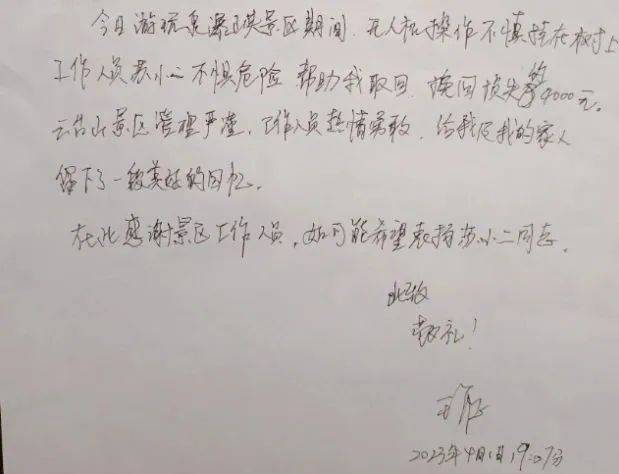 今日游玩息潭瀑景区期间,无人机操作不慎挂在树上
工作人员苏小二不惧危险 帮助我取回 挽回损失约9000元。
云台山景区管理严谨,工作人员热情勇敢,给我及我的家人
留下了一段美好的回忆。
在此感谢景区工作人员,如可能希望表扬苏小二同志。
此致
敬礼!
2023年4月1日19:07分